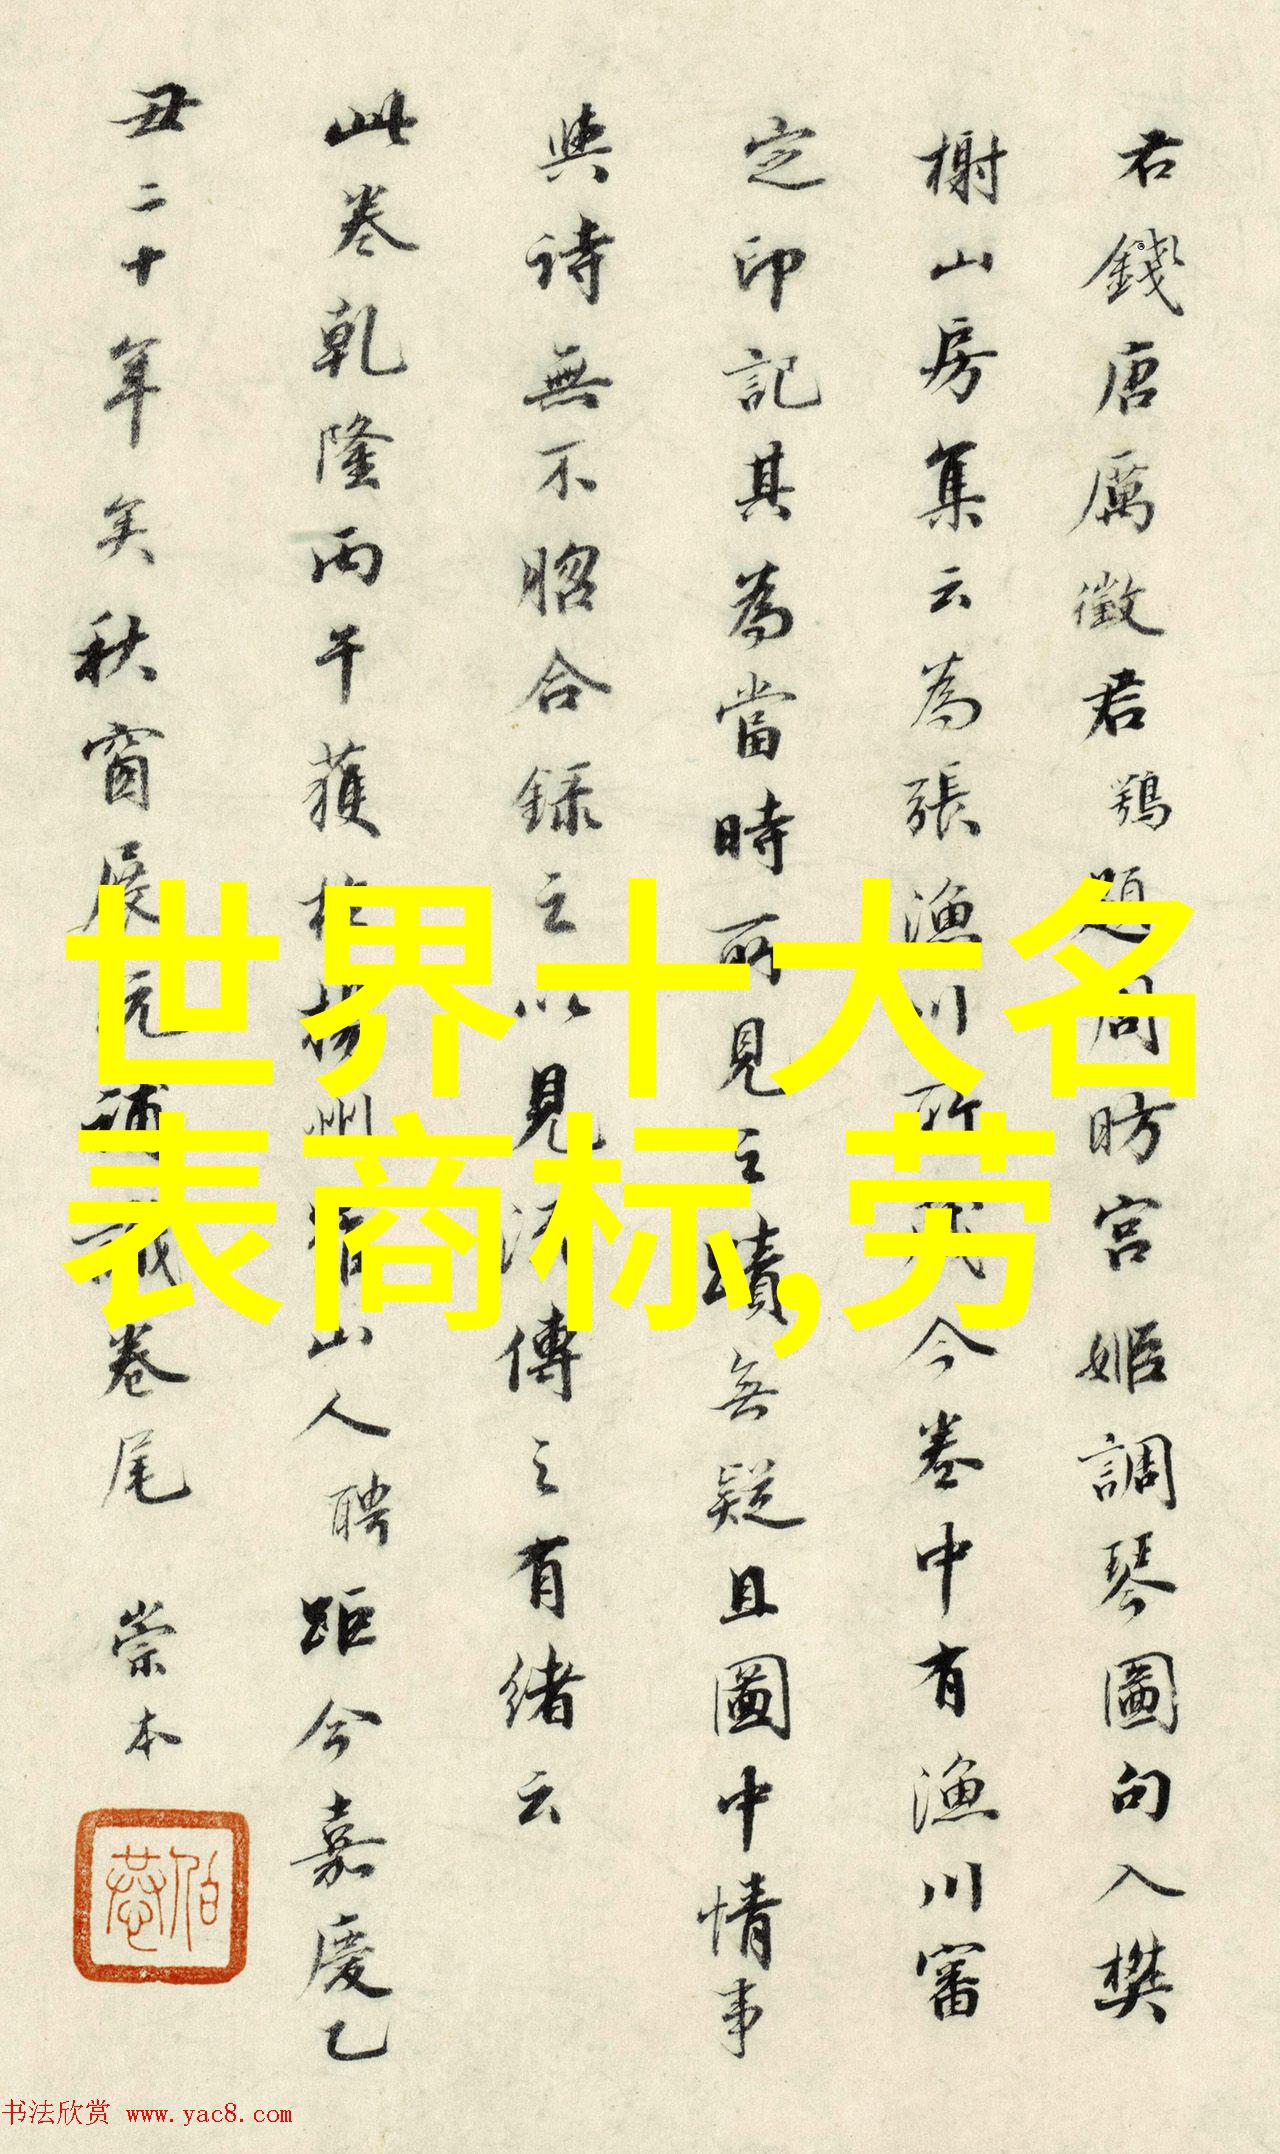 君錢唐厲徵君鶚題周昉宮姬調琴圖句入樊
榭山房集云為張漁川所今卷中有漁川審
定印記其為當時所見之蹟無疑且圖中情事
與詩無不脗合錄之以見流傳之有緒云
此卷乾隆丙午獲於揚州山人聘距今嘉慶乙
丑二十年矣秋窗展玩補識卷尾 崇本
世界十大名
表商标,劳
书法欣赏 www.yac8.com